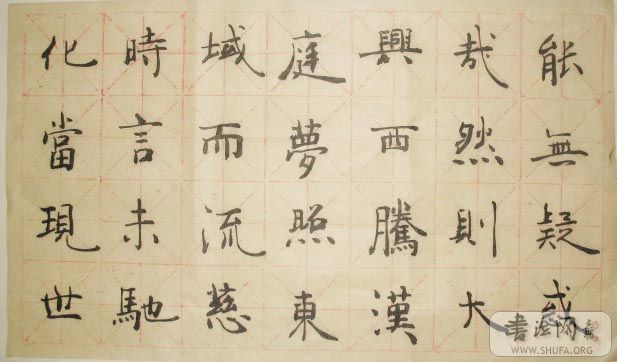 能無疑惑
哉然則大
興西騰漢
庭夢照東
域而流慈
時言未馳
化當現世
書法网
WWW.SHUFA.ORG